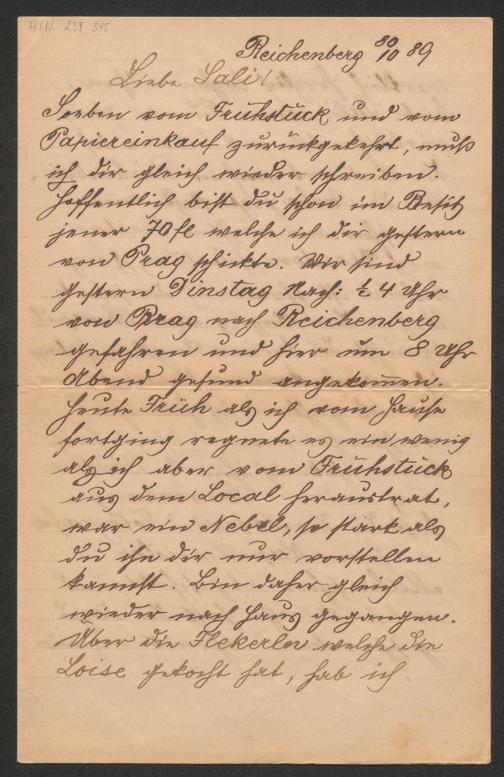 H.I.N. 239 345
Reichenberg 30/10 89
Liebe Sali!
Soeben vom Frühstück und vom
Papiereinkauf zurückgekehrt, muß
ich dir gleich wieder schreiben.
Hoffentlich bist du schon im Besitz
jener 70 fl welche ich dir gestern
von Prag schickte. Wir sind
gestern Dinstag Nach: ½ 4 Uhr
von Prag nach Reichenberg
gefahren und hier um 8 Uhr
Abend gesund angekom̄en.
Heute Früh als ich vom Hause
fortging regnete es ein wenig
als ich aber vom Frühstück
aus dem Local heraustrat,
war ein Nebel, so stark als
du ihn dir nur vorstellen
kannst. Bin daher gleich
wieder nach Haus gegangen.
Über die Flekerln welche die
Loise gekocht hat, hab ich